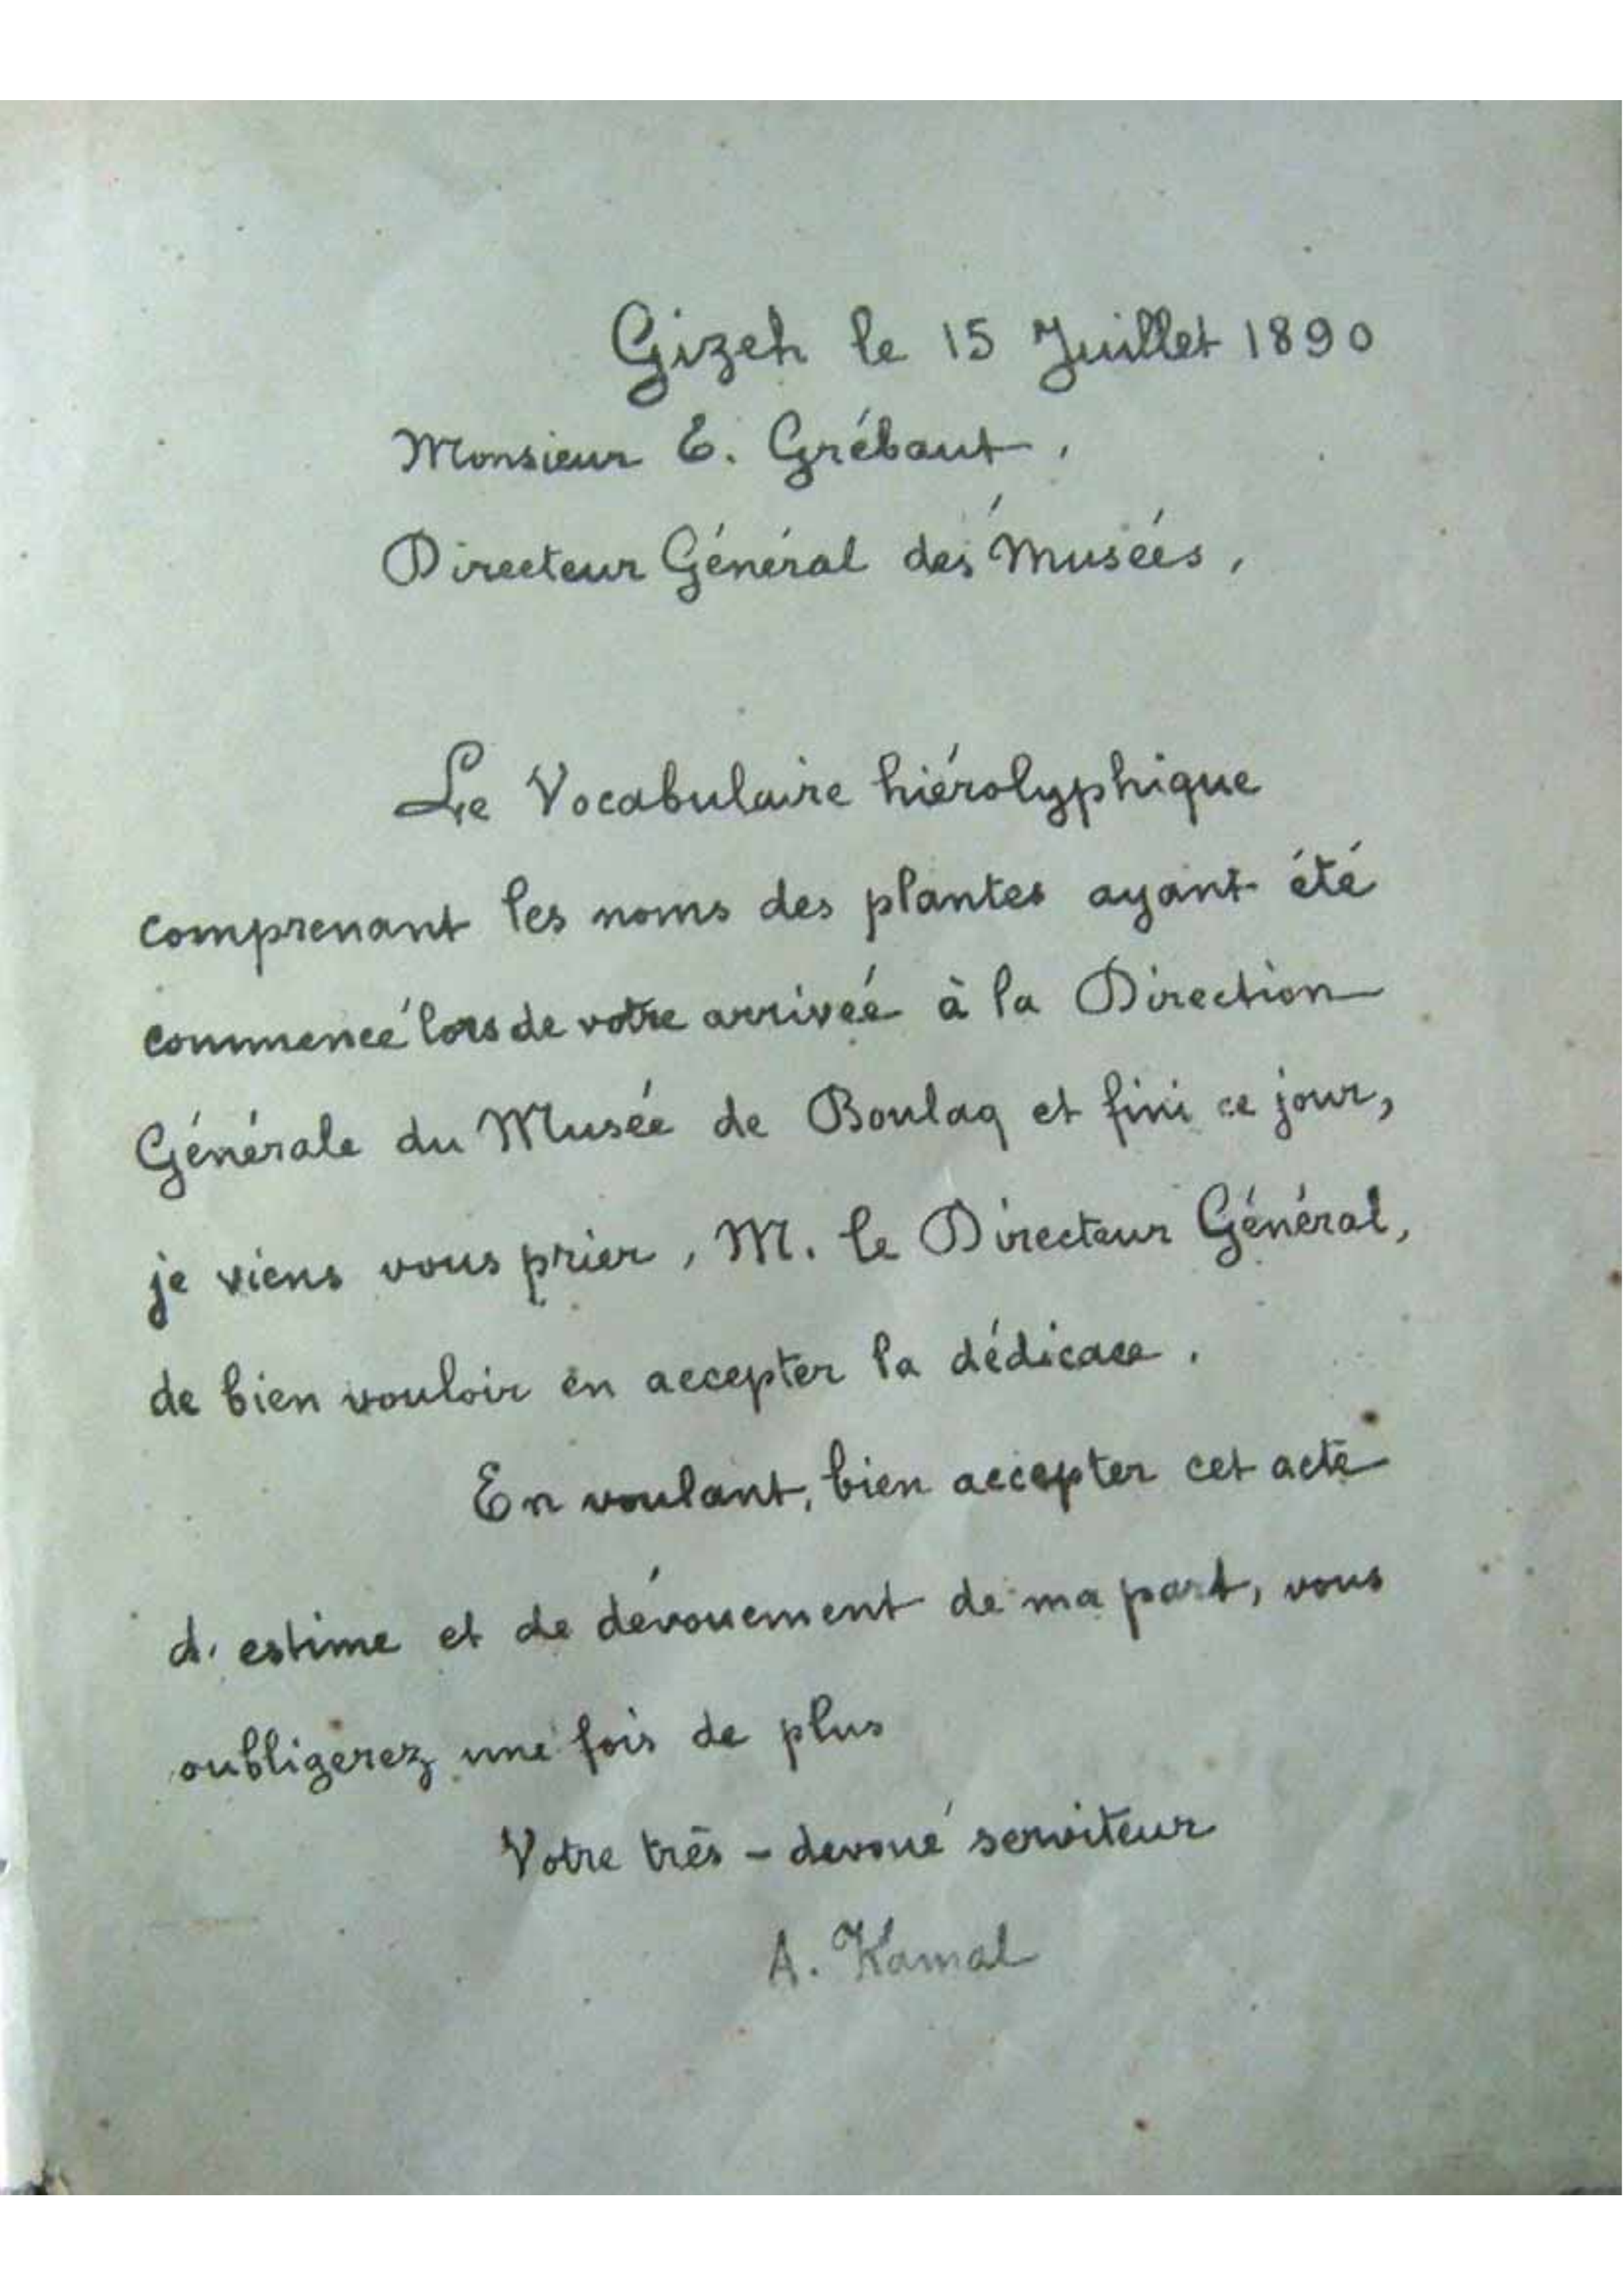 Gizeh le 15 Juillet 1890
Monsieur E. Grébaut,
Directeur Général des Musées,
Le Vocabulaire hiérolyphique
comprenant les noms des plantes ayant été
commencé lors de votre arrivée à la Direction
Générale du Musée de Boulaq et fini ce jour,
je viens vous prier, M. le Directeur Général,
de bien vouloir en accepter la dédicace.
En voulant, bien accepter cet acte
d'estime et de dévouement de ma part, vous
oubligerez une fois de plus
Votre très - devoué serviteur
A. Kamal